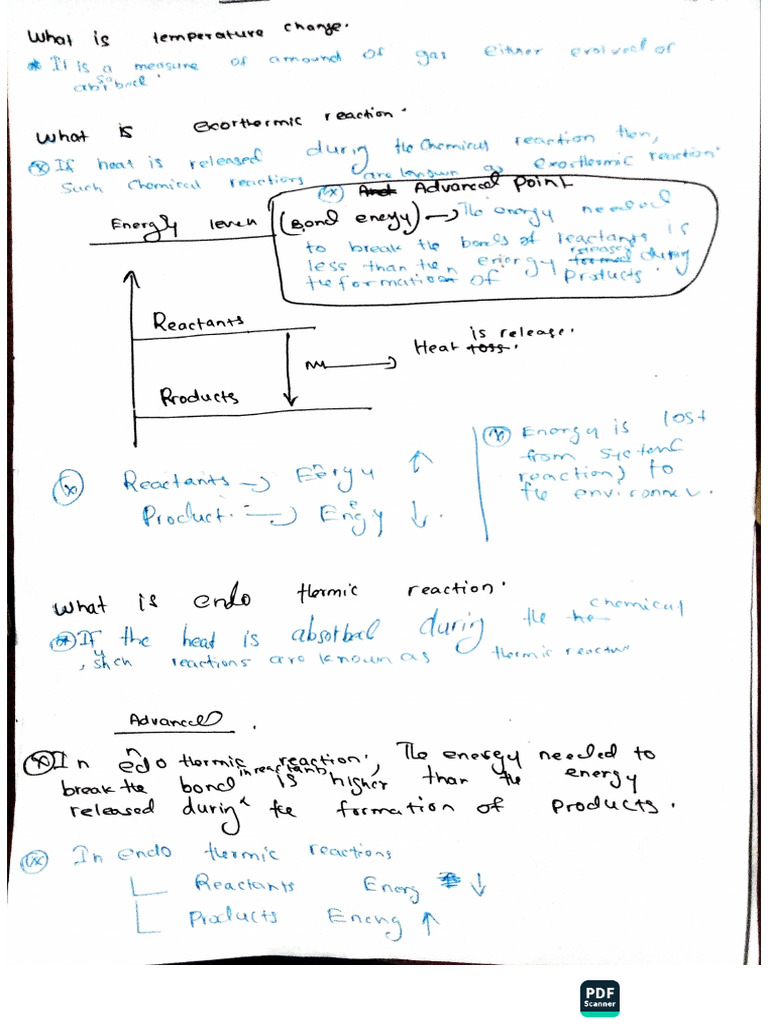 What is temperature change.
* It is a measure of amound of gas either evolved or
absorbed.
What is exorthermic reaction.
(x) If heat is released during the Chemical reaction then,
Such Chemical reactions are known as exosthermic reaction.
(x) Advanced Point
Energy leven (Bond enegy) → The energy needed
to break the bonds of reactants is
less than then energy released during
the formation of Products.
Reactants
is release.
Heat loss.
Products
(x) Energy is lost
from system(
reaction) to
the environmen.
(x) Reactants → Energy ↑
Product. → Enegy ↓.
What is endo thermic reaction.
(*) If the heat is absorbed during the chemical
, such reactions are known as thermic reaction
Advanced.
(x) In endo thermic reaction, The energy needed to
break the bond in reactants is higher than the energy
released during the formation of Products.
(x) In endo thermic reactions
Reactants Energ ↓
Products Eneng ↑
PDF
Scanner